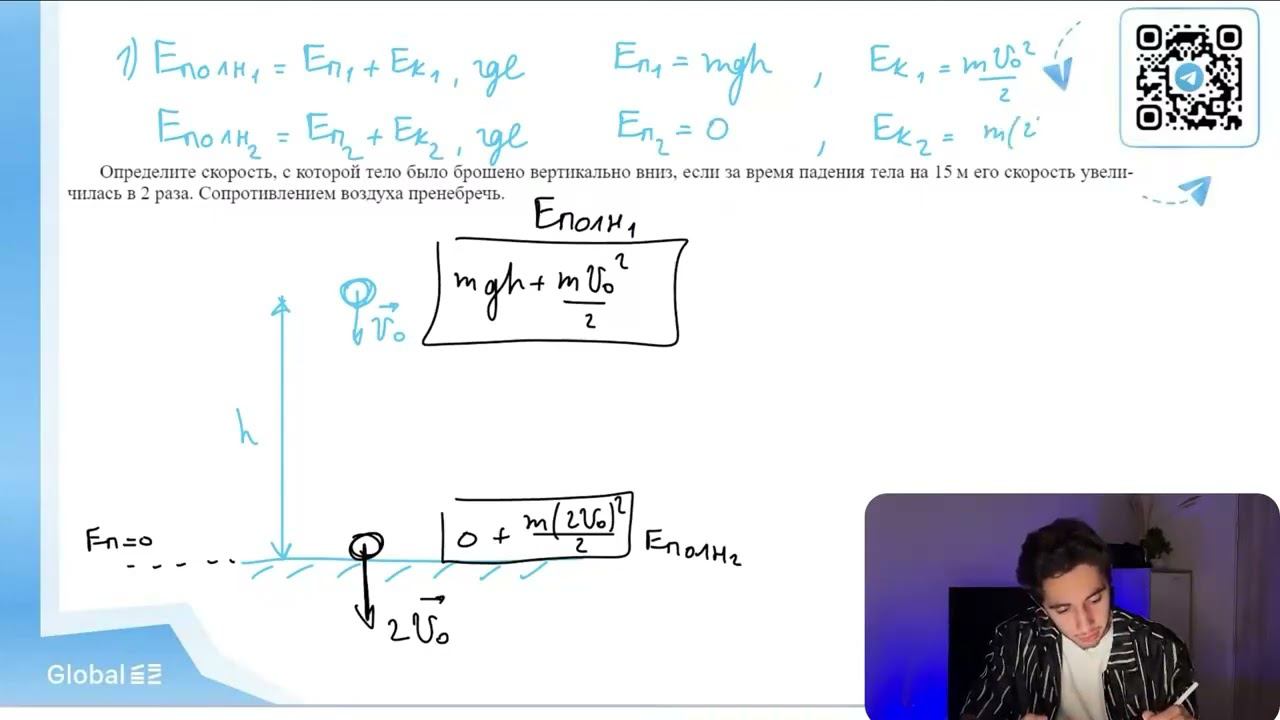 1) Eполн₁ = Eп₁ + Eк₁, где Eп₁ = mgh , Eк₁ = mV₀²/2
Eполн₂ = Eп₂ + Eк₂, где Eп₂ = 0 , Eк₂ = m(2
Определите скорость, с которой тело было брошено вертикально вниз, если за время падения тела на 15 м его скорость увели-
чилась в 2 раза. Сопротивлением воздуха пренебречь.
Eполн₁
mgh + mV₀²/2
V₀
h
Eп=0
0 + m(2V₀)²/2 Eполн₂
2V₀
Global EE